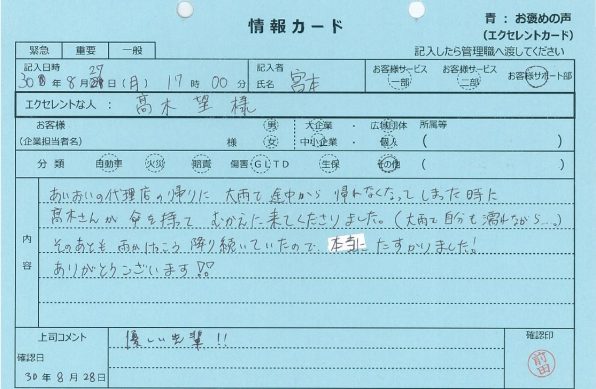 情報カード
青：お褒めの声
（エクセレントカード）
記入したら管理職へ渡してください
緊急 重要 一般
記入日時 30年8月27日(月) 17時00分
記入者氏名 宮本
お客様サービス一部 お客様サービス二部 お客様サポート部
エクセレントな人： 高木 望 様
お客様 男 大企業・広域団体 所属等
（企業担当者名） 様 女 中小企業・個人 （ ）
分類 自動車 火災 賠責 傷害・GLTD 生保 その他 （ ）
内容
あいおいの代理店の帰りに 大雨で 途中から 帰れなくなってしまった時に
高木さんが 傘を持って むかえに来てくださりました。(大雨で自分も濡れながら…。)
そのあとも 雨がけっこう 降り続いていたので、本当にたすかりました!
ありがとうございます!!
上司コメント 優しい先輩!!
確認日
30年8月28日
確認印
前田